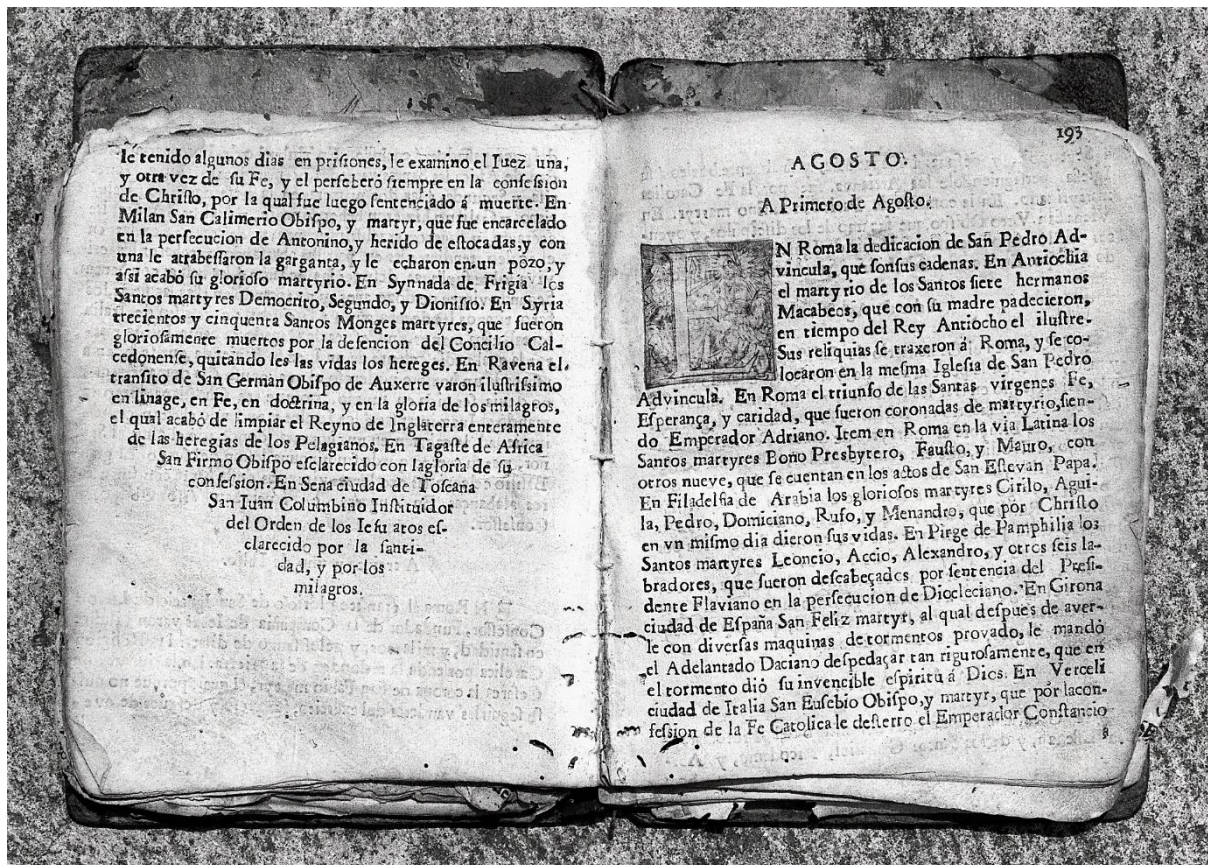 le tenido algunos dias en prisiones, le examino el Iuez una,
y otra vez de su Fe, y el perseberó siempre en la confession
de Christo, por la qual fue luego sentenciado á muerte. En
Milan San Calimerio Obispo, y martyr, que fue encarcelado
en la persecucion de Antonino, y herido de estocadas, y con
una le atrabessaron la garganta, y le echaron en un pozo, y
assi acabó su glorioso martyrio. En Synnada de Frigia los
Santos martyres Democrito, Segundo, y Dionisio. En Syria
trecientos y cinquenta Santos Monges martyres, que fueron
gloriosamente muertos por la defencion del Concilio Cal-
cedonense, quitando les las vidas los hereges. En Ravena el
transito de San German Obispo de Auxerre varon ilustrissimo
en linage, en Fe, en doctrina, y en la gloria de los milagros,
el qual acabó de limpiar el Reyno de Inglaterra enteramente
de las heregias de los Pelagianos. En Tagaste de Africa
San Firmo Obispo esclarecido con la gloria de su
confession. En Sena ciudad de Toscana
San Iuan Columbino Instituidor
del Orden de los Iesu atos es-
clarecido por la santi-
dad, y por los
milagros.
193
AGOSTO.
A Primero de Agosto.
EN Roma la dedicacion de San Pedro Ad-
vincula, que son sus cadenas. En Antiochia
el martyrio de los Santos siete hermanos
Macabeos, que con su madre padecieron,
en tiempo del Rey Antiocho el ilustre.
Sus reliquias se traxeron á Roma, y se co-
locaron en la mesma Iglesia de San Pedro
Advincula. En Roma el triunfo de las Santas virgenes Fe,
Esperança, y caridad, que fueron coronadas de martyrio, sien-
do Emperador Adriano. Item en Roma en la via Latina los
Santos martyres Bono Presbytero, Fausto, y Mauro, con
otros nueve, que se cuentan en los actos de San Estevan Papa.
En Filadelfia de Arabia los gloriosos martyres Cirilo, Agui-
la, Pedro, Domiciano, Rufo, y Menandro, que por Christo
en vn mismo dia dieron sus vidas. En Pirge de Pamphilia los
Santos martyres Leoncio, Accio, Alexandro, y otros seis la-
bradores, que fueron descabeçades por sentencia del Presi-
dente Flaviano en la persecucion de Diocleciano. En Girona
ciudad de España San Feliz martyr, al qual despues de aver-
le con diversas maquinas de tormentos provado, le mandó
el Adelantado Daciano despedaçar tan rigurosamente, que en
el tormento dió su invencible espiritu á Dios. En Verceli
ciudad de Italia San Eusebio Obispo, y martyr, que por la con-
fession de la Fe Catolica le desterro el Emperador Constancio